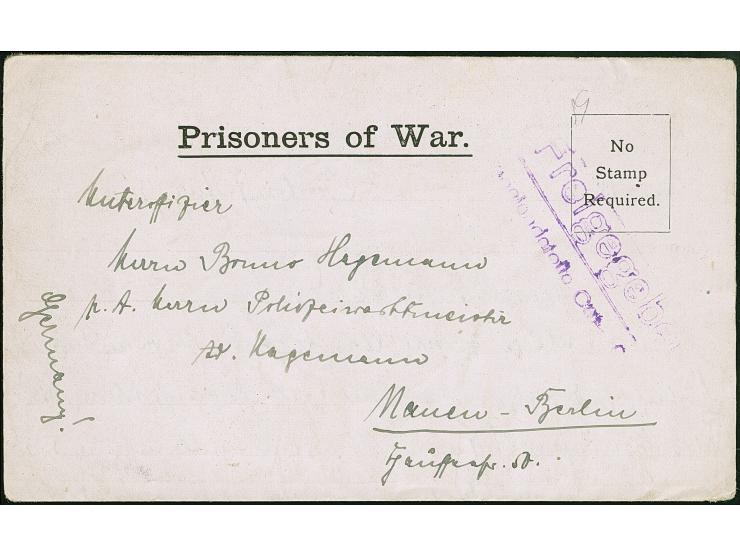 Prisoners of War.
No
Stamp
Required.
Freigegeben
Unteroffizier
Herrn Bruno Hagemann
p. A. Herrn Polizeiwachtmeister
W. Hagemann
Nauen - Berlin
Germany!